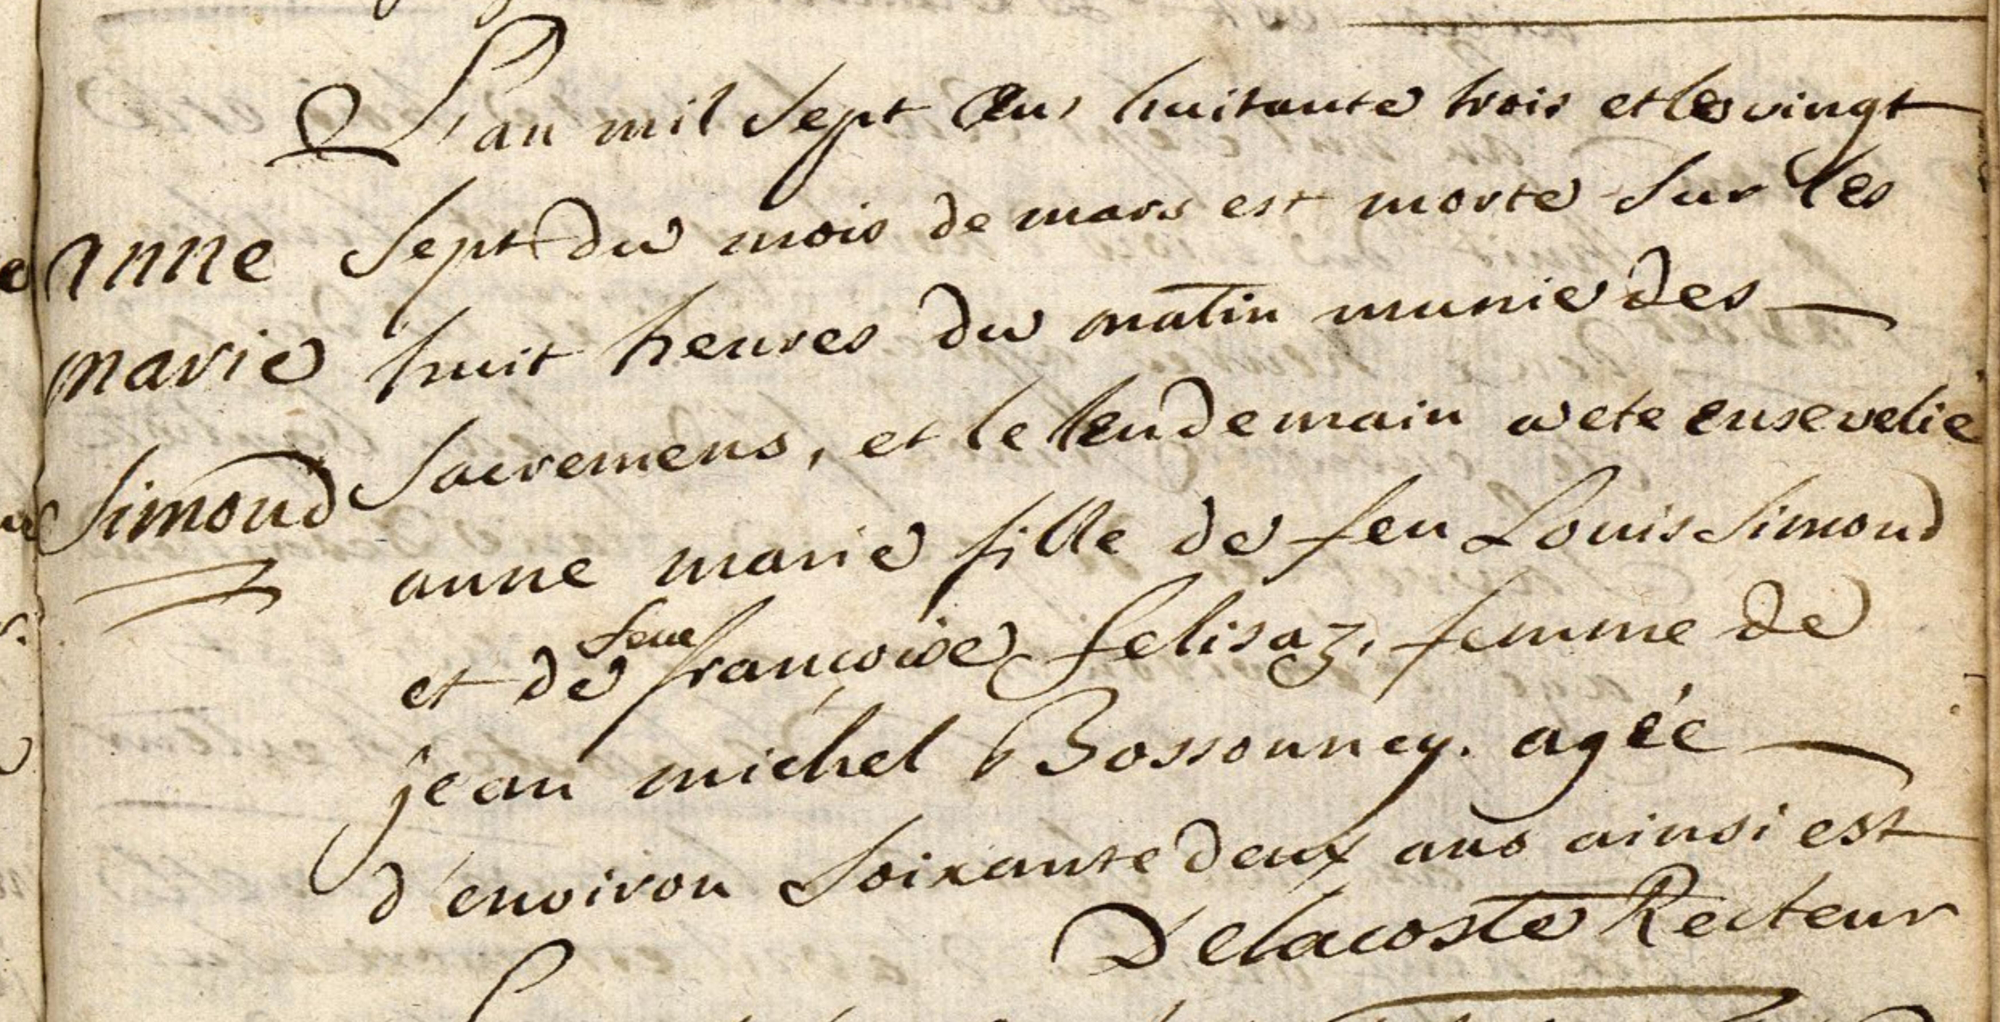 L'an mil sept cens huitante trois et les vingt
anne sept du mois de mars est morte sur les
marie huit heures du matin munie des
Simond Sacremens, et le lendemain a ete ensevelie
anne marie fille de feu Louis Simond
et de feue françoise felisaz, femme de
jean michel Bossonney. agée
d'environ Soixante deux ans ainsi est
Delacoste Recteur